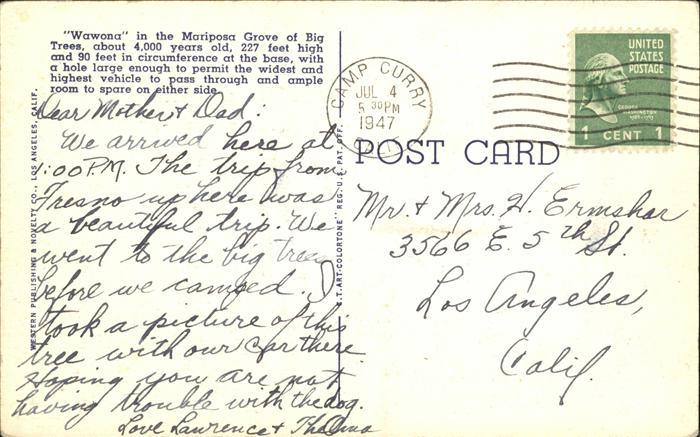 "Wawona" in the Mariposa Grove of Big
Trees, about 4,000 years old, 227 feet high
and 90 feet in circumference at the base, with
a hole large enough to permit the widest and
highest vehicle to pass through and ample
room to spare on either side.
Dear Mother & Dad:
We arrived here at
1:00 P.M. The trip from
Fresno up here was
a beautiful trip. We
went to the big trees
before we camped. I
took a picture of this
tree with our car there
Hoping you are not
having trouble with the dog.
Love Lawrence & Thelma
WESTERN PUBLISHING & NOVELTY CO., LOS ANGELES, CALIF.
"C.T. ART-COLORTONE" REG. U.S. PAT. OFF.
CAMP CURRY
JUL 4
5 30 PM
1947
UNITED
STATES
POSTAGE
GEORGE
WASHINGTON
1 CENT 1
POST CARD
Mr. & Mrs. H. Ermshar
3566 E. 5th St.
Los Angeles,
Calif.